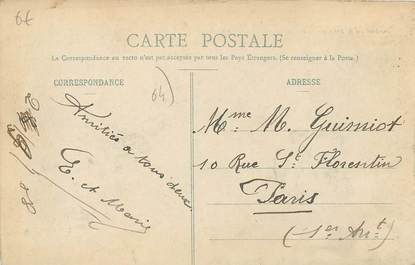 6€
CARTE POSTALE
La Correspondance au recto n'est pas acceptée par tous les Pays Étrangers. (Se renseigner à la Poste.)
CORRESPONDANCE
ADRESSE
64)
Amitiés à tous deux
E. et Marie
Mme M. Guimiot
10 Rue St Florentin
Paris
(1er Arrt)